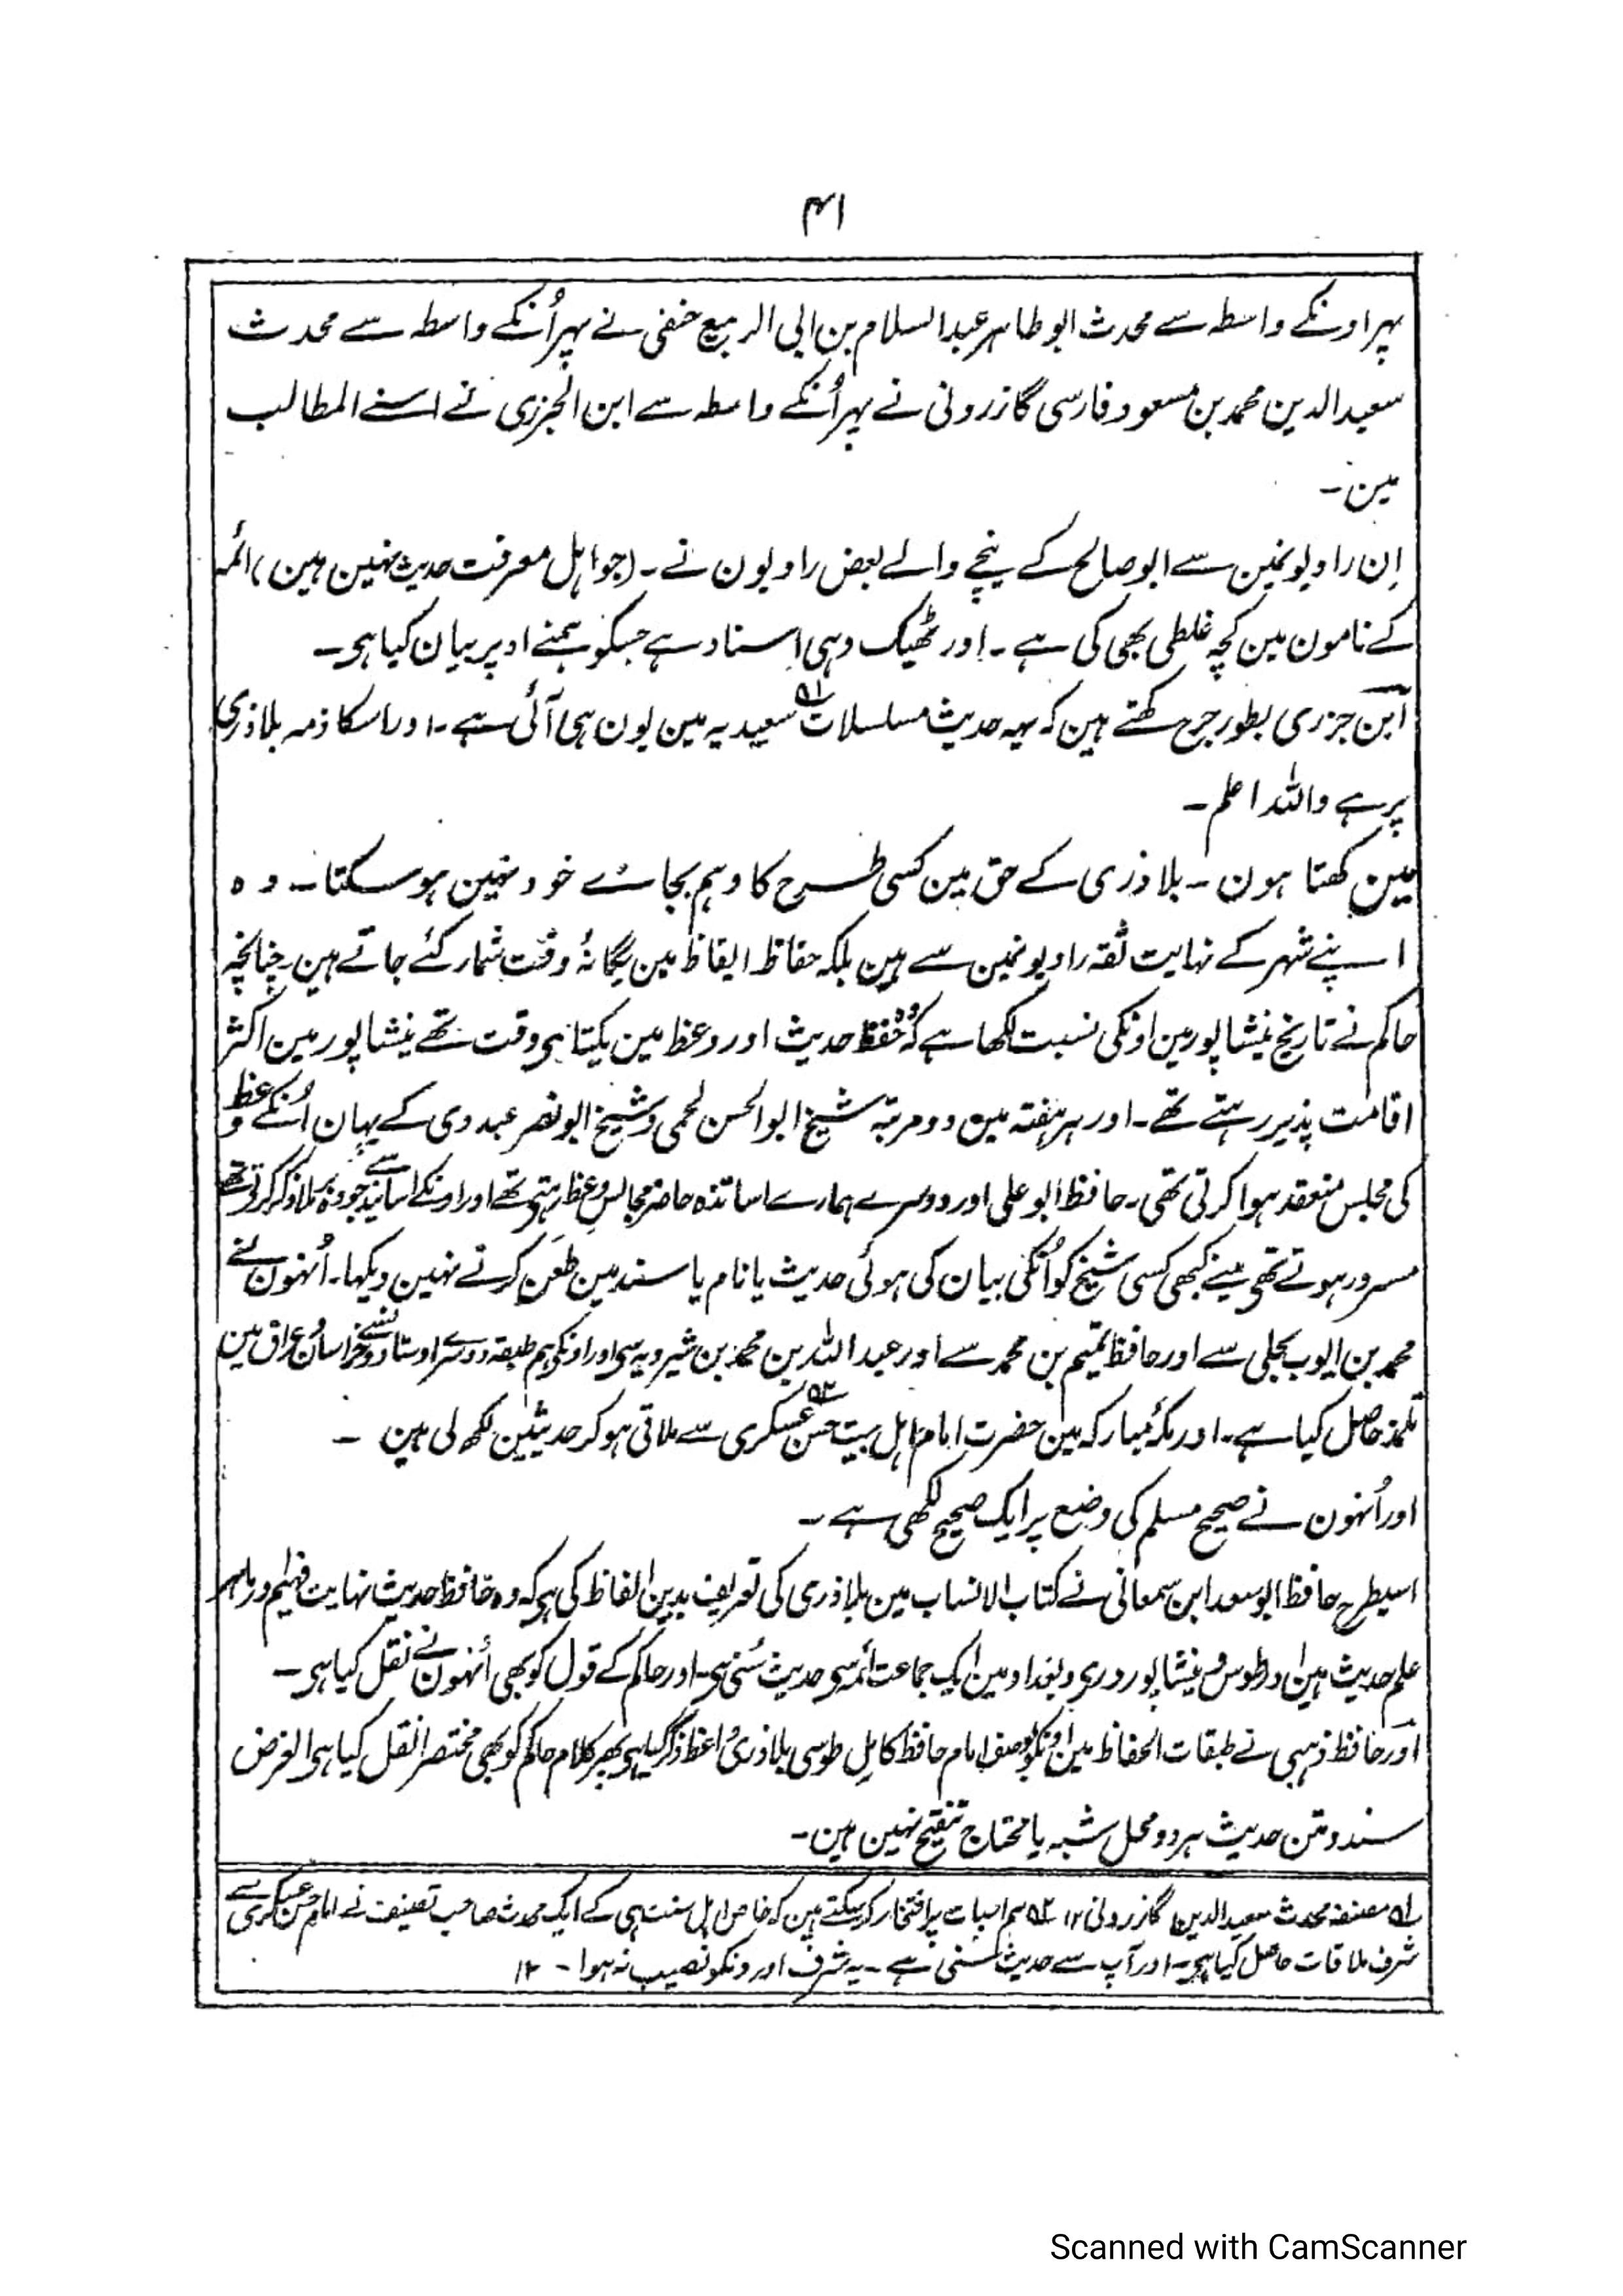 ۴۱
پہر اونکے واسطہ سے محدث ابو طاہر عبدالسلام بن ابی الربیع حنفی نے پہر اُنکے واسطہ سے محدث
سعید الدین محمد بن مسعود فارسی گازرونی نے پہر اُنکے واسطہ سے ابن الجزری نے اسنے المطالب
مین۔
اِن راویونمین سے ابو صالح کے نیچے والے بعض راویون نے۔ (جو اہل معرفت حدیث نہین ہین) ائمہ
کے نامون مین کچہ غلطی بھی کی ہے۔ اور ٹھیک وہی اسناد ہے جسکو ہمنے اوپر بیان کیا ہی۔
ابن جزری بطور جرح کھتے ہین کہ یہہ حدیث مسلسلات ۵۱ سعیدیہ مین یون ہی آئی ہے۔ اور اسکا ذمہ بلاذری
پر ہے واللہ اعلم۔
مین کھتا ہون۔ بلاذری کے حق مین کسی طرح کا وہم بجاے خود نہین ہو سکتا۔ وہ
اپنے شہر کے نہایت ثقہ راویونمین سے ہین بلکہ حفاظ ایقاظ مین یگانۂ وقت شمار کئے جاتے ہین۔ چنانچہ
حاکم نے تاریخ نیشاپور مین اونکی نسبت لکھا ہے کہ وہ حفظ حدیث اور وعظ مین یکتاے وقت تھے نیشاپور مین اکثر
اقامت پذیر رہتے تھے۔ اور ہر ہفتہ مین دو مرتبہ شیخ ابو الحسن لحمی و شیخ ابو نصر عبدوی کے یہان اُنکے وعظ
کی مجلس منعقد ہوا کرتی تھی۔ حافظ ابو علی اور دوسرے ہمارے اساتذہ حاضر مجالس وعظ رہتے تھے اور اونکے اسانید سے جو وہ برملا ذکر کرتے تھے
مسرور ہوتے تھی مینے کبھی کسی شیخ کو اُنکی بیان کی ہوئی حدیث یا نام یا سند مین طعن کرتے نہین دیکھا۔ اُنہون نے
محمد بن ایوب بجلی سے اور حافظ تمیم بن محمد سے اور عبد اللہ بن محمد بن شیرویہ سی اور اونکی ہم طبقہ دوسرے اوستادونسے خراسان و عراق مین
تلمذ حاصل کیا ہے۔ اور مکۂ مبارکہ مین حضرت امام اہل بیت حسن عسکری ۵۲ سے ملاقی ہو کر حدیثین لکھ لی ہین۔
اور اُنہون نے صحیح مسلم کی وضع پر ایک صحیح لکھی ہے۔
اسیطرح حافظ ابو سعد ابن سمعانی نے کتاب الانساب مین بلاذری کی تعریف بدین الفاظ کی ہی کہ وہ حافظ حدیث نہایت فہیم اور ماہر
علم حدیث ہین اور طوس و نیشاپور و ری و بغداد مین ایک جماعت ائمہ سی حدیث سُنی ہی۔ اور حاکم کے قول کو بھی اُنہون نے نقل کیا ہی۔
اور حافظ ذہبی نے طبقات الحفاظ مین اونکو بوصف امام حافظ کامل طوسی بلاذری واعظ ذکر کیا ہی پھر کلام حاکم کو بھی مختصر انقل کیا ہی الغرض
سند و متن حدیث ہر دو محل شبہ یا محتاج تنقیح نہین ہین۔
۵۱ مصنفہ محدث سعید الدین گازرونی ۱۲ ۵۲ ہم اسبات پر افتخار کر سکتے ہین کہ خاص اہل سنت ہی کے ایک محدث صاحب تصنیف نے امام حسن عسکری سے
شرف ملاقات حاصل کیا ہی۔ اور آپ سے حدیث سنی ہے۔ یہ شرف اورونکو نصیب نہ ہوا۔ ۱۲
Scanned with CamScanner